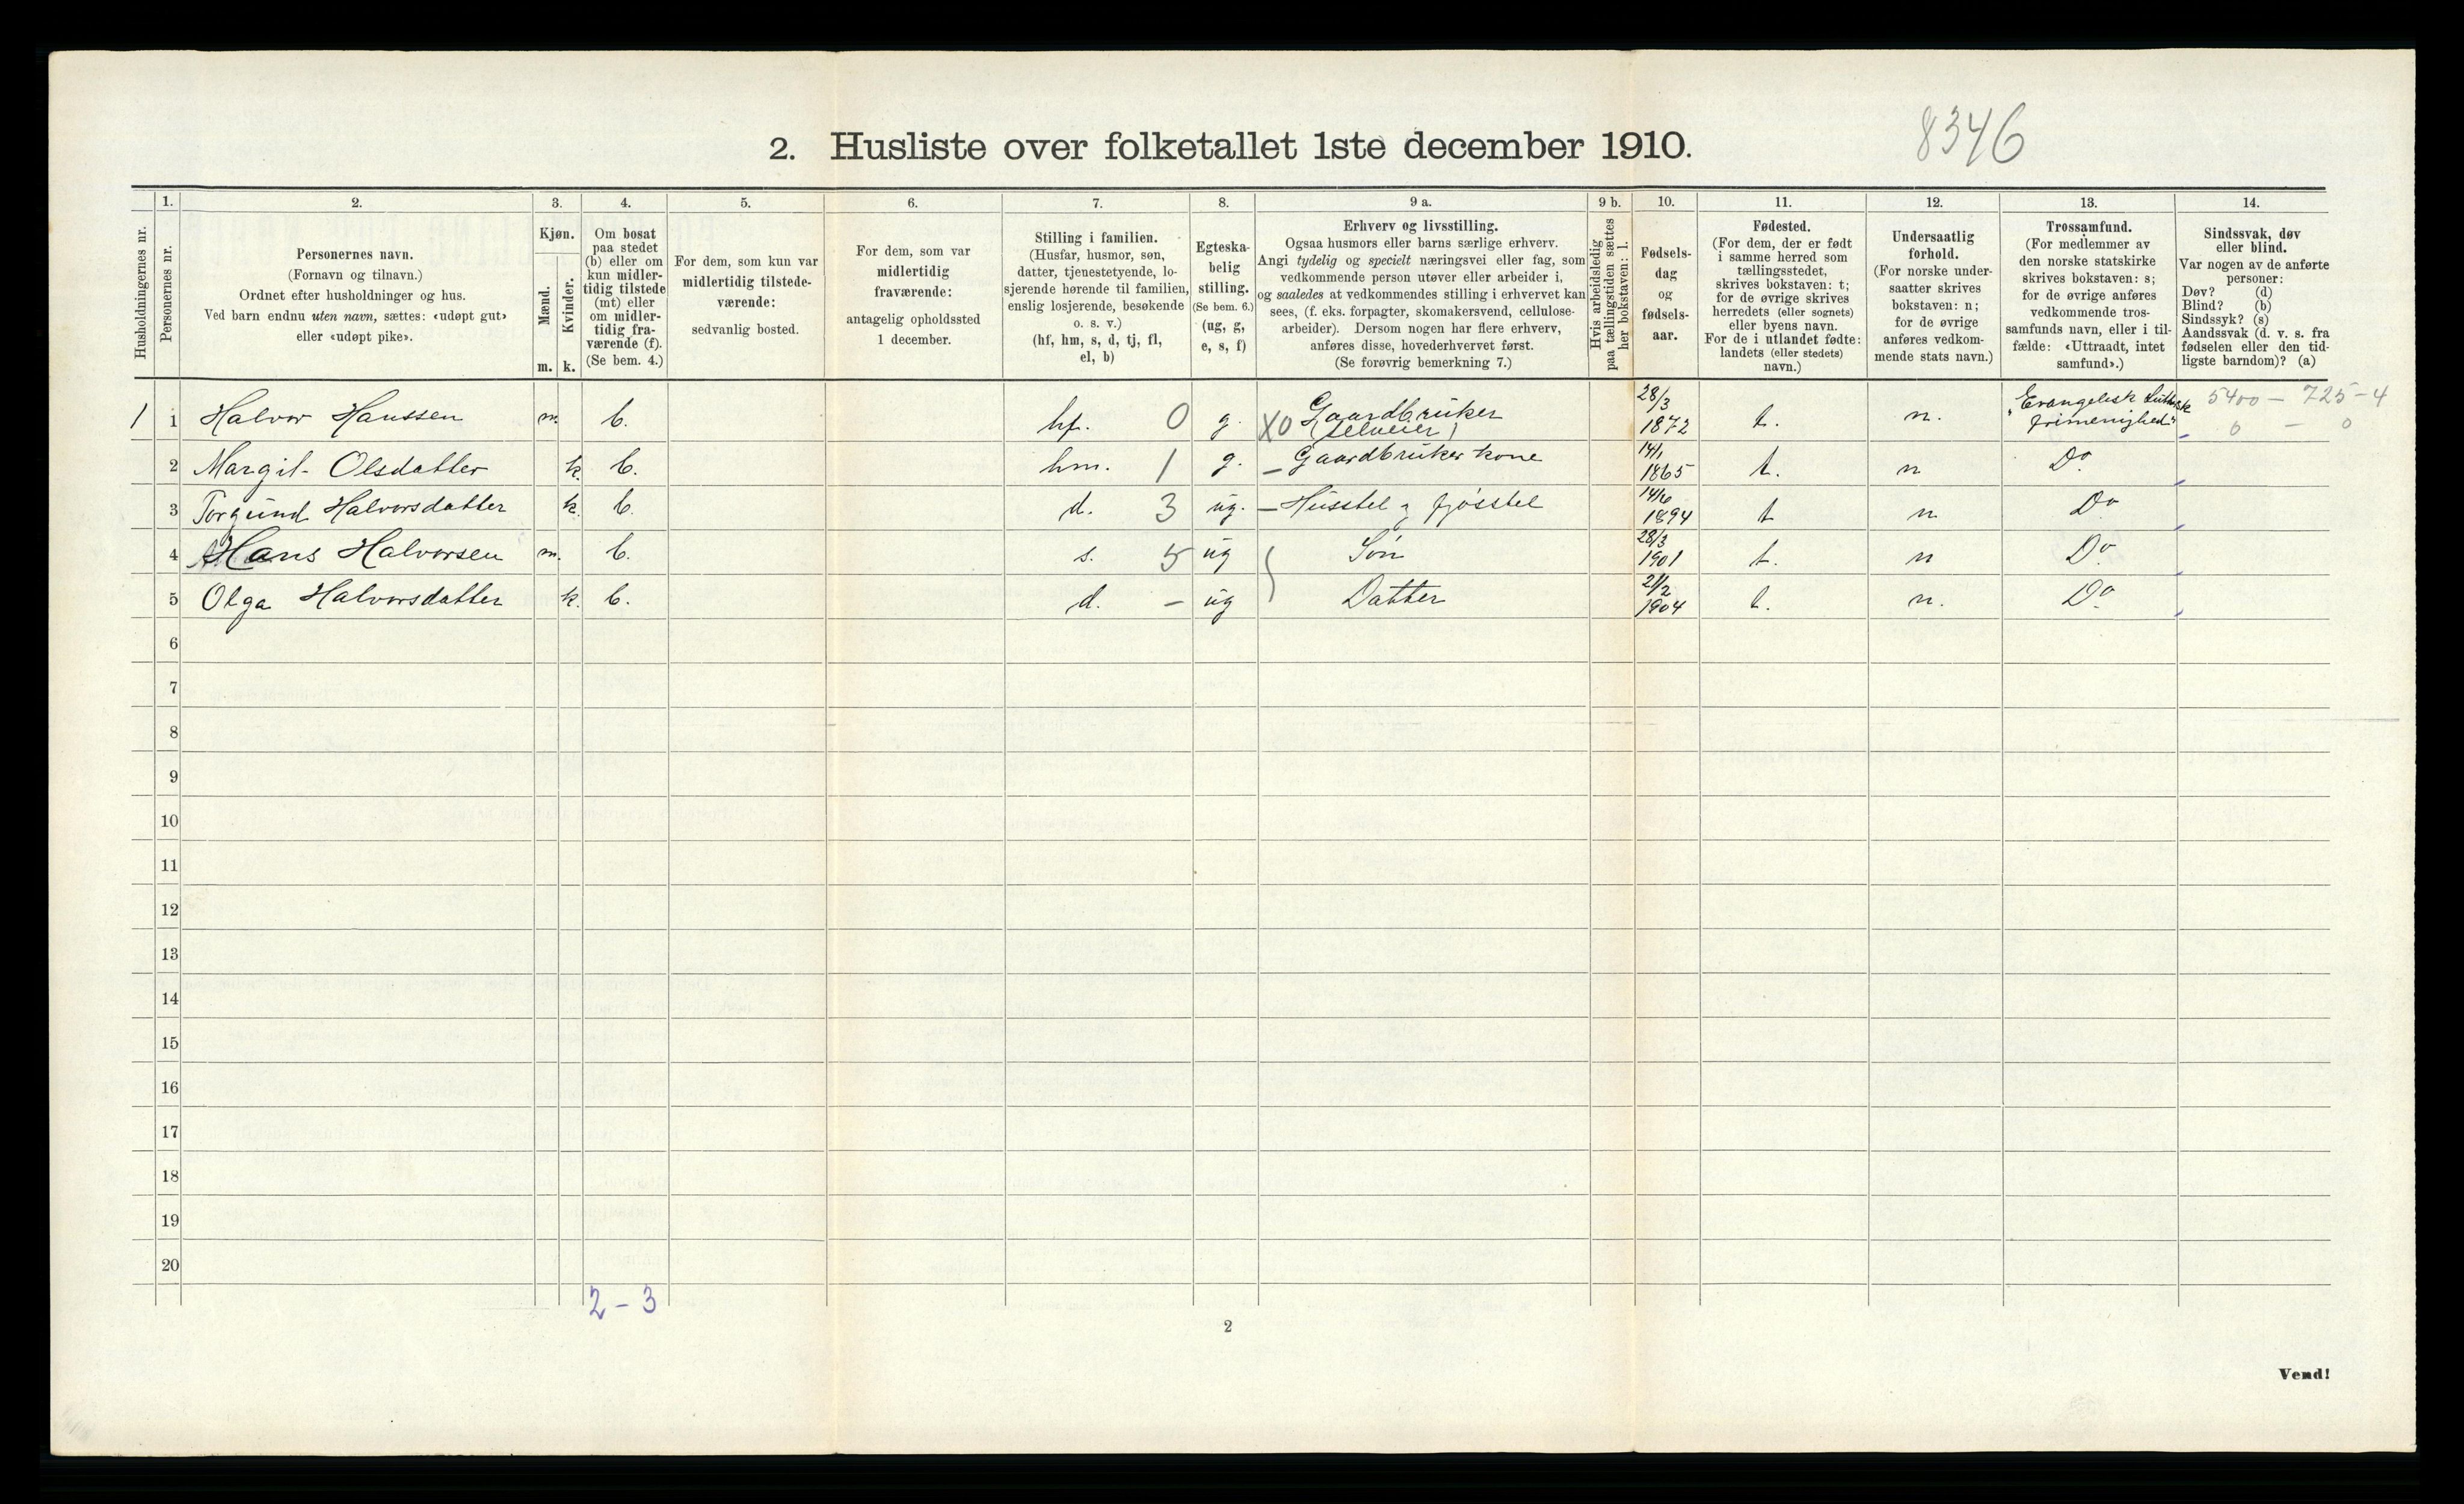 8346
2. Husliste over folketallet 1ste december 1910.
Husholdningernes nr.
1. Personernes nr.
2. Personernes navn.
(Fornavn og tilnavn.)
Ordnet efter husholdninger og hus.
Ved barn endnu uten navn, sættes: «udøpt gut»
eller «udøpt pike».
3. Kjøn.
Mænd. m.
Kvinder. k.
4. Om bosat
paa stedet
(b) eller om
kun midler-
tidig tilstede
(mt) eller
om midler-
tidig fra-
værende (f).
(Se bem. 4.)
5. For dem, som kun var
midlertidig tilstede-
værende:
sedvanlig bosted.
6. For dem, som var
midlertidig
fraværende:
antagelig opholdssted
1 december.
7. Stilling i familien.
(Husfar, husmor, søn,
datter, tjenestetyende, lo-
sjerende hørende til familien,
enslig losjerende, besøkende
o. s. v.)
(hf, hm, s, d, tj, fl,
el, b)
8. Egteska-
belig
stilling.
(Se bem. 6.)
(ug, g,
e, s, f)
9 a. Erhverv og livsstilling.
Ogsaa husmors eller barns særlige erhverv.
Angi tydelig og specielt næringsvei eller fag, som
vedkommende person utøver eller arbeider i,
og saaledes at vedkommendes stilling i erhvervet kan
sees, (f. eks. forpagter, skomakersvend, cellulose-
arbeider). Dersom nogen har flere erhverv,
anføres disse, hovederhvervet først.
(Se forøvrig bemerkning 7.)
9 b. Hvis arbeidsledig
paa tællingstiden sættes
her bokstaven: l.
10. Fødsels-
dag
og
fødsels-
aar.
11. Fødested.
(For dem, der er født
i samme herred som
tællingsstedet,
skrives bokstaven: t;
for de øvrige skrives
herredets (eller sognets)
eller byens navn.
For de i utlandet fødte:
landets (eller stedets)
navn.)
12. Undersaatlig
forhold.
(For norske under-
saatter skrives
bokstaven: n;
for de øvrige
anføres vedkom-
mende stats navn.)
13. Trossamfund.
(For medlemmer av
den norske statskirke
skrives bokstaven: s;
for de øvrige anføres
vedkommende tros-
samfunds navn, eller i til-
fælde: «Uttraadt, intet
samfund».)
14. Sindssvak, døv
eller blind.
Var nogen av de anførte
personer:
Døv? (d)
Blind? (b)
Sindssyk? (s)
Aandssvak (d. v. s. fra
fødselen eller den tid-
ligste barndom)? (a)
1 1 Halvor Hanssen m. b. hf. 0 g. X0 Gaardbruker (selveier) 28/3 1872 t. n. "Evangelisk Luthersk frimenighed" 5400 - 725-4
0 - 0
2 Margit Olsdatter k. b. hm. 1 g. - Gaardbruker kone 14/1 1865 t. n Do
3 Torgund Halvorsdatter k. b. d. 3 ug. - Husstel og fjøsstel 14/6 1894 t n Do
4 Hans Halvorsen m. b. s. 5 ug Søn 28/3 1901 t. n Do
5 Olga Halvorsdatter k. b. d. - ug Datter 21/2 1904 t. n. Do
6
7
8
9
10
11
12
13
14
15
16
17
18
19
20
2 - 3
2
Vend!